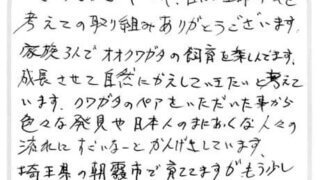 考えての取り組みありがとうございます。
家族3人でオオクワガタの飼育を楽しんでます。
成長させて自然にかえしていきたいと考えて
います。クワガタのペアをいただいた事から
色々な発見や日本人のまにあくな人々の
流れにすごいなーとかんげきしています。
埼玉県の朝霞市で育ててますがもう少し